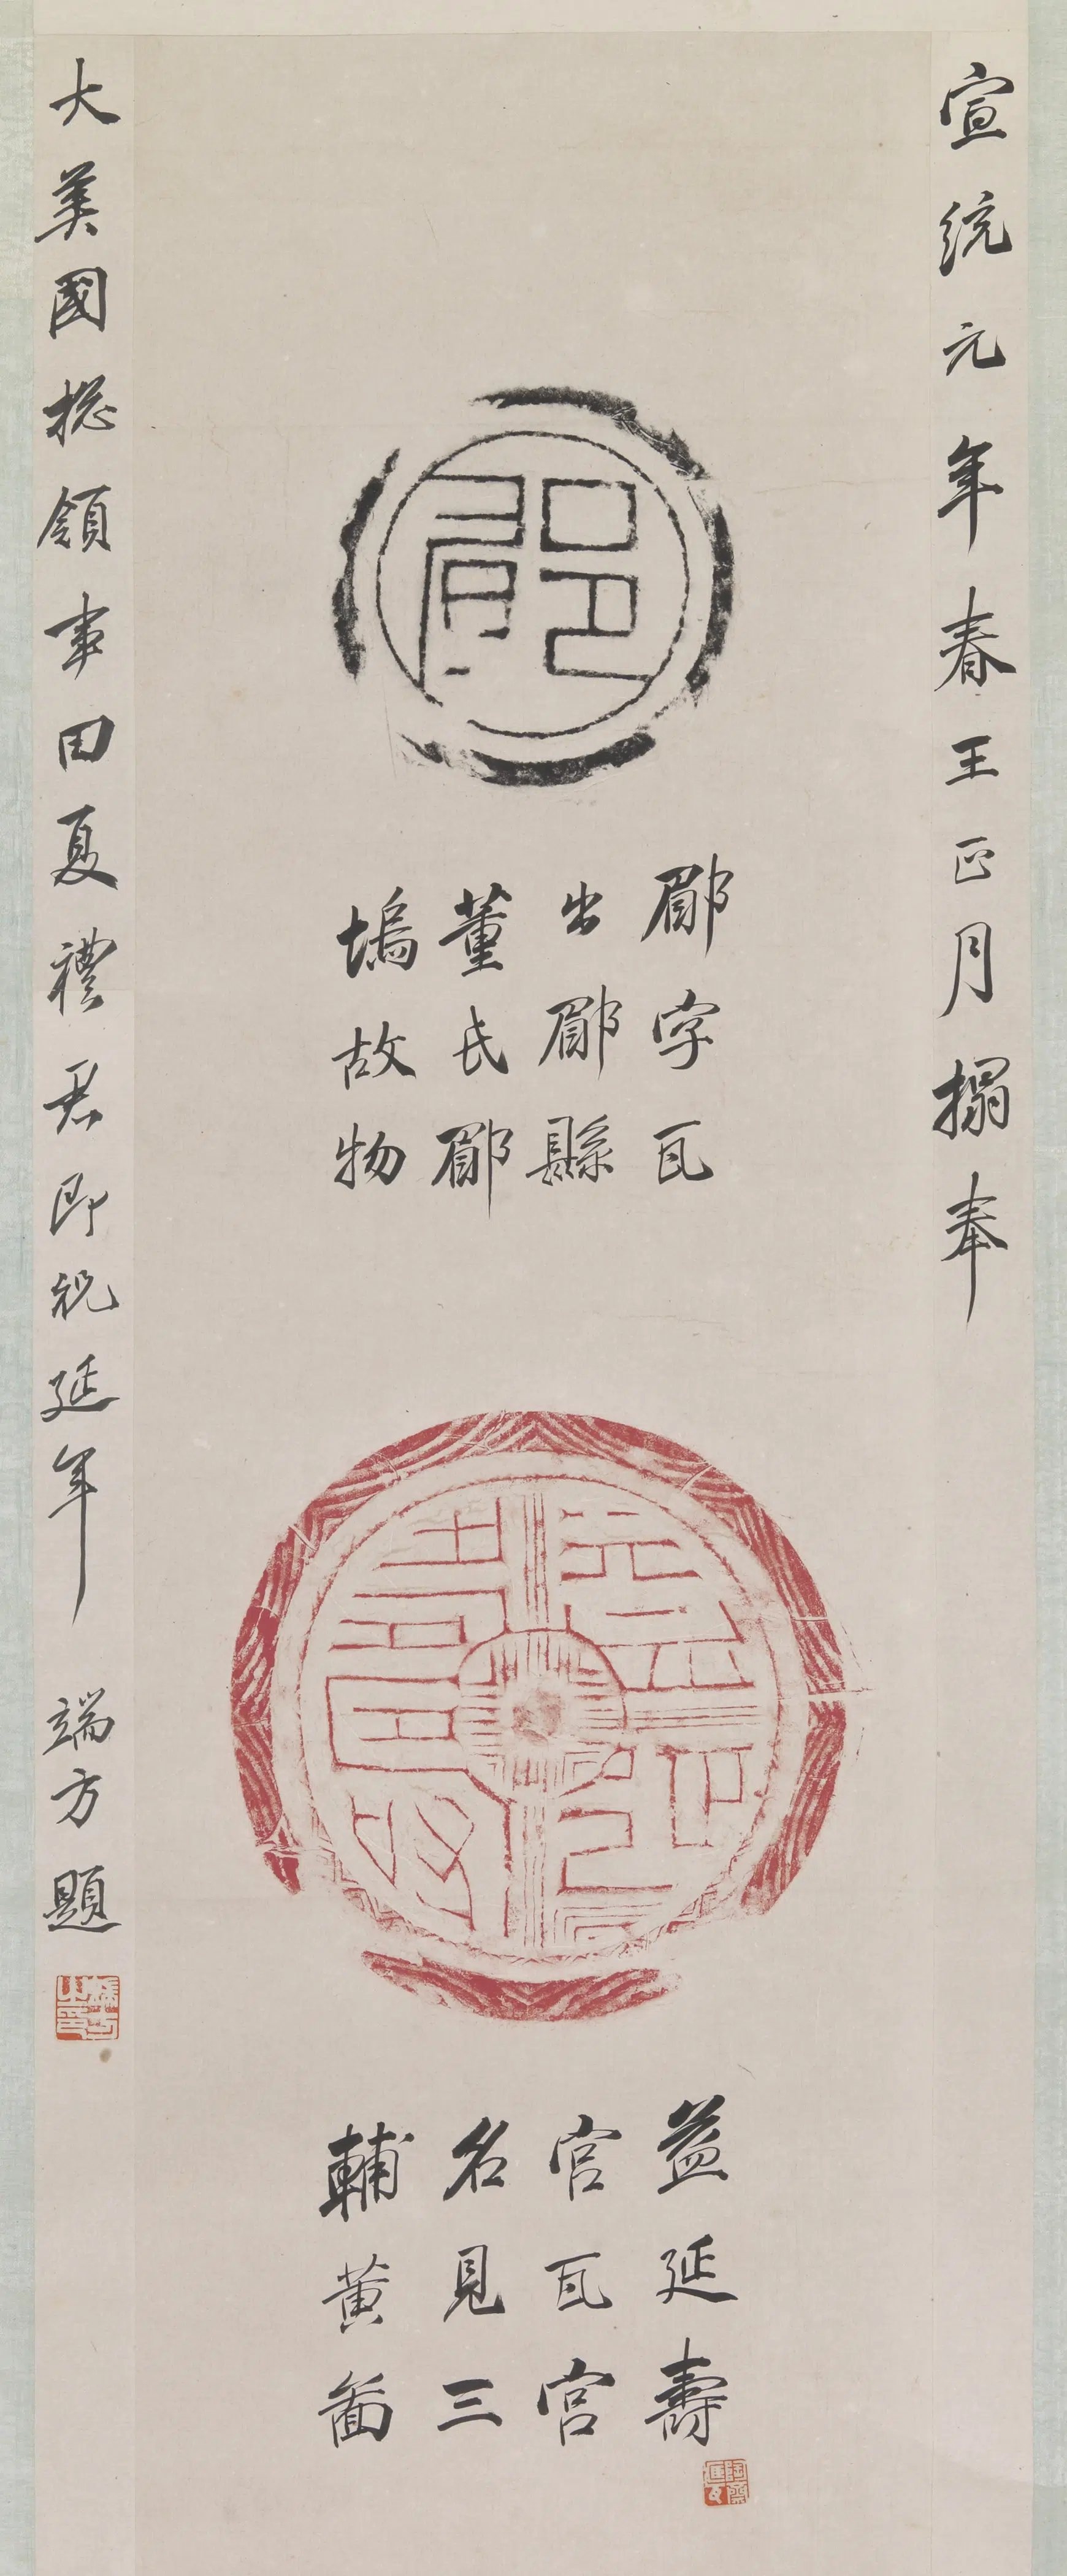 宣統元年春王正月搨奉
郿
郿字瓦
出郿縣
董氏郿
塢故物
益延壽
益延壽
官瓦宫
名見三
輔黄啚
大美國揔領事田夏禮君即祝延年
端方題